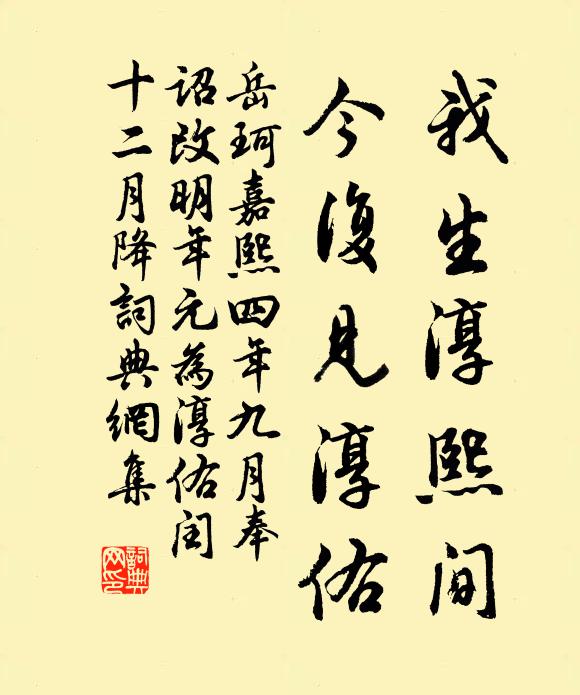 我生淳熙间
今復見淳佑
岳珂嘉熙四年九月奉
詔改明年元為淳佑閏
十二月降詞典網集
詞典
网印